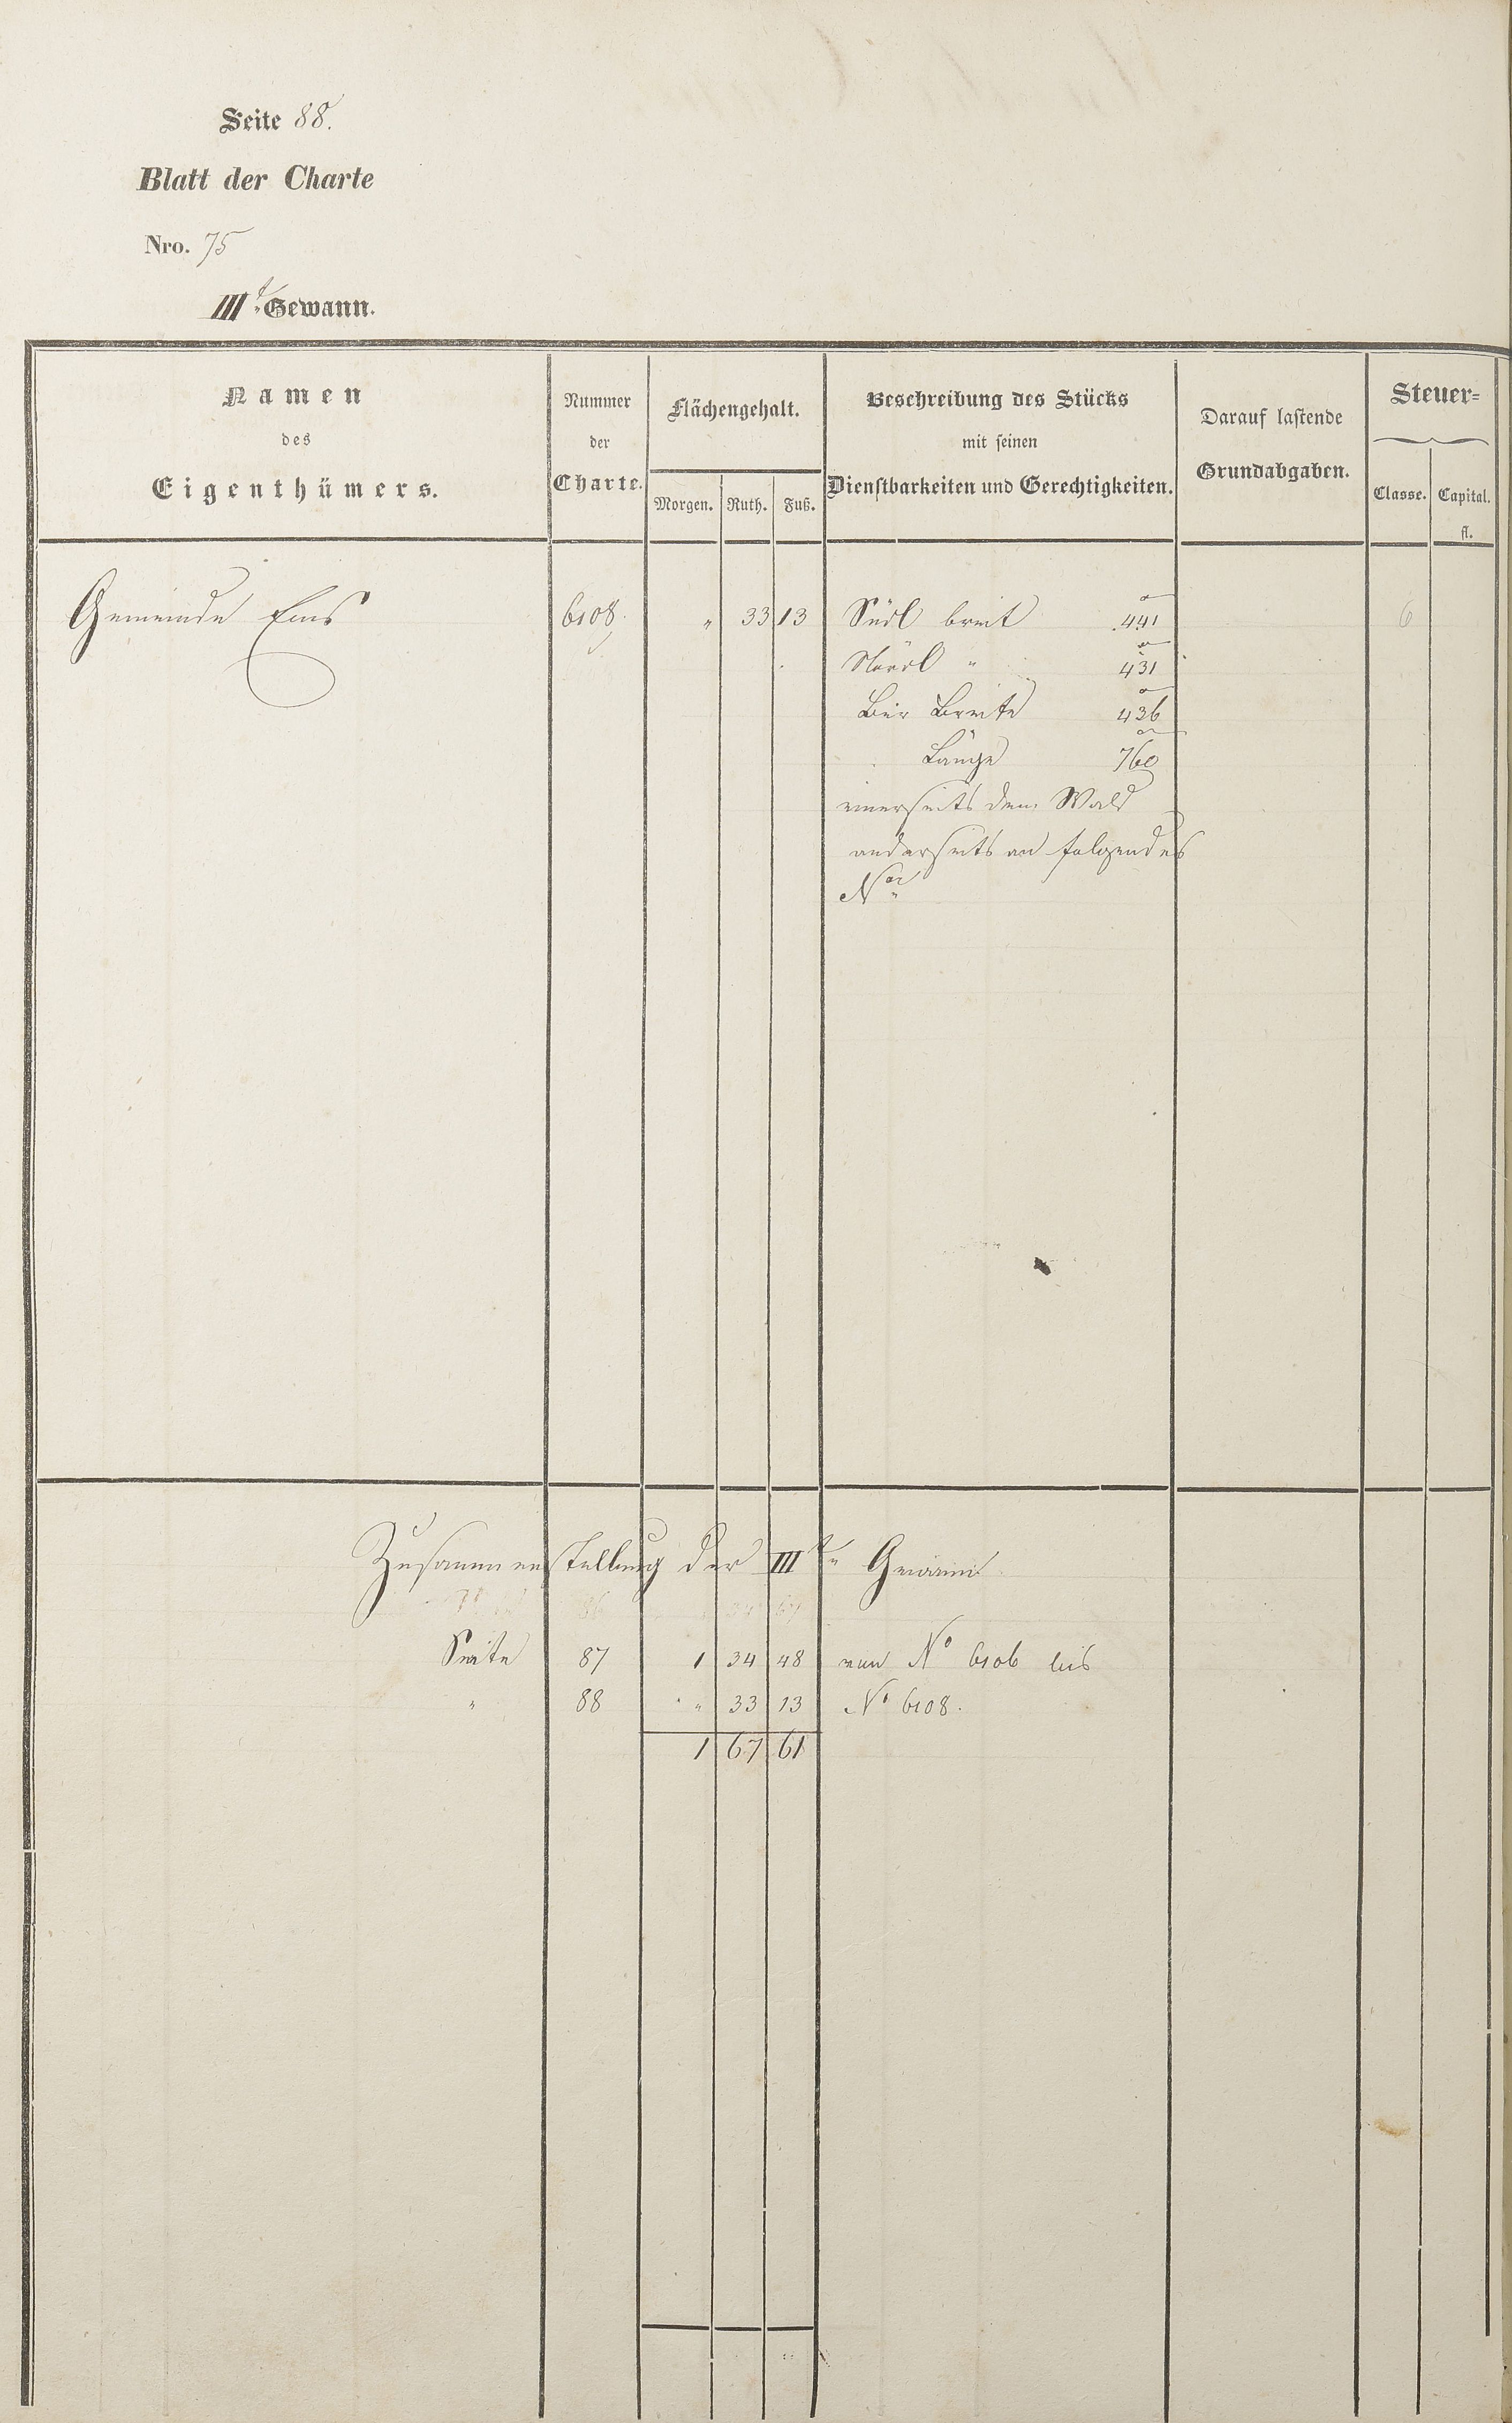 Seite 88.
Blatt der Charte
Nro. 75
IIIt. Gewann.
Namen
des
Eigenthümers.
Nummer
der
Charte.
Flächengehalt.
Morgen. Ruth. Fuß.
Beschreibung des Stücks
mit seinen
Dienstbarkeiten und Gerechtigkeiten.
Darauf lastende
Grundabgaben.
Steuer-
Classe. Capital.
fl.
Gemeinde Ems 6108. " 33 13 Südl breit 441 6
Nördl " 431
Breite 436
Länge 760
einerseits dem Wald
anderseits an folgendes
Nor
Zusammenstellung der IIIten Gewann
Seite 87 1 34 48 von No 6106 bis
" 88 " 33 13 No 6108.
1 67 61